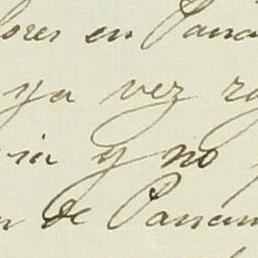 lores en Pana
ya vez ra
ia y no
n de Panam